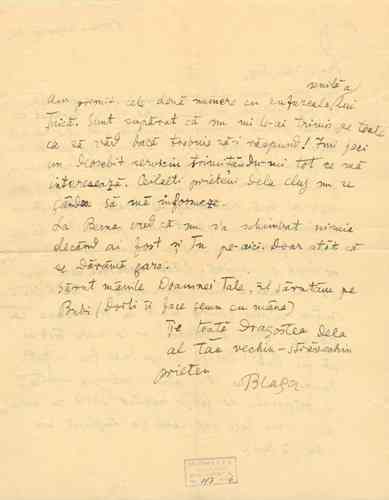 senilă a
Am primit cele două numere cu lui
Țuică. Sunt supărat că nu mi le-ai trimis pe toate
ca să văd dacă trebuie să-i răspund! Îmi faci
un deosebit serviciu trimițându-mi tot ce mă
interesează. Ceilalți prieteni dela Cluj nu se
gândesc să mă informeze.
La Berna cred că nu s'a schimbat nimic
decând ai fost și Tu pe-aici. Doar atât că
se dărâmă gara.
Sărut mâinile Doamnei Tale, pe
Bubi (Dorli îi face semn cu mâna)
Ție toată dragostea dela
al Tău vechiu-străvechiu
prieten
Blaga